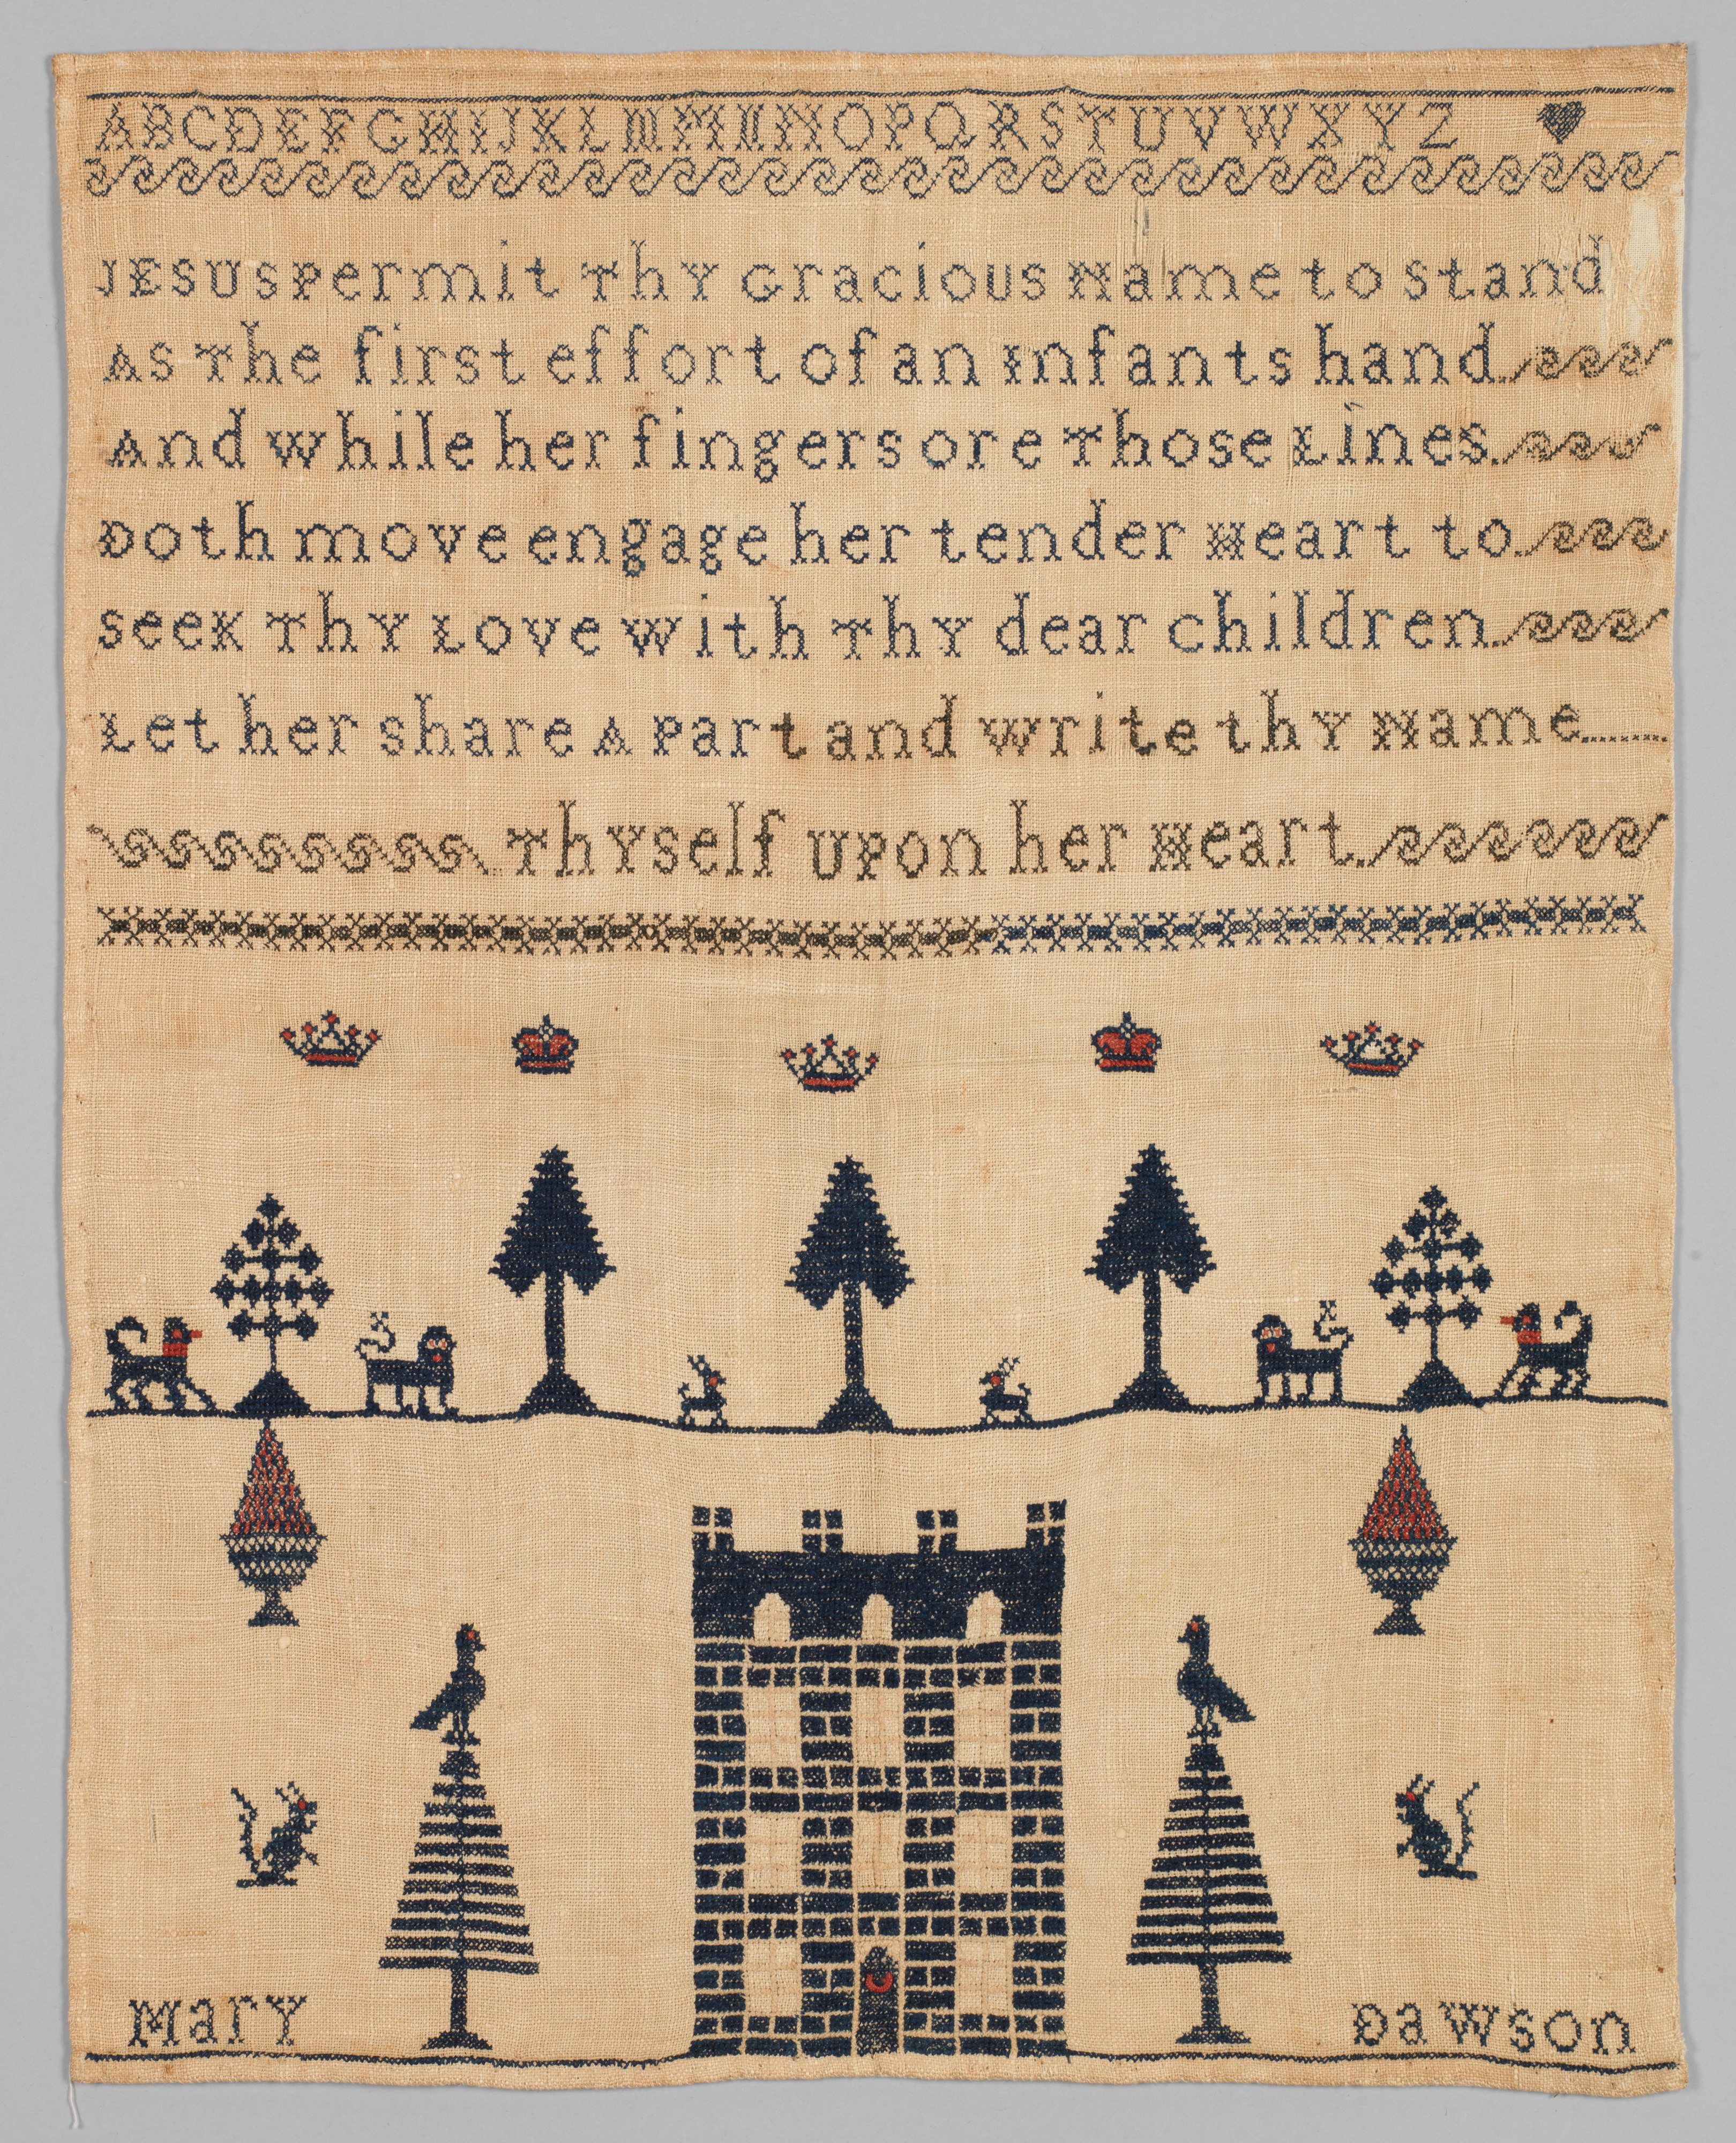 ABCDEFGHIJKLMMNNOPQRSTUVWXYZ
JESUS Permit ThY Gracious Name to stand
As The first effort of an Infants hand
And while her fingers ore Those Lines
Doth move engage her tender Heart to
seeK ThY Love with ThY dear children
Let her share A Part and write thY Name
ThYself UPon her Heart
MarY Dawson